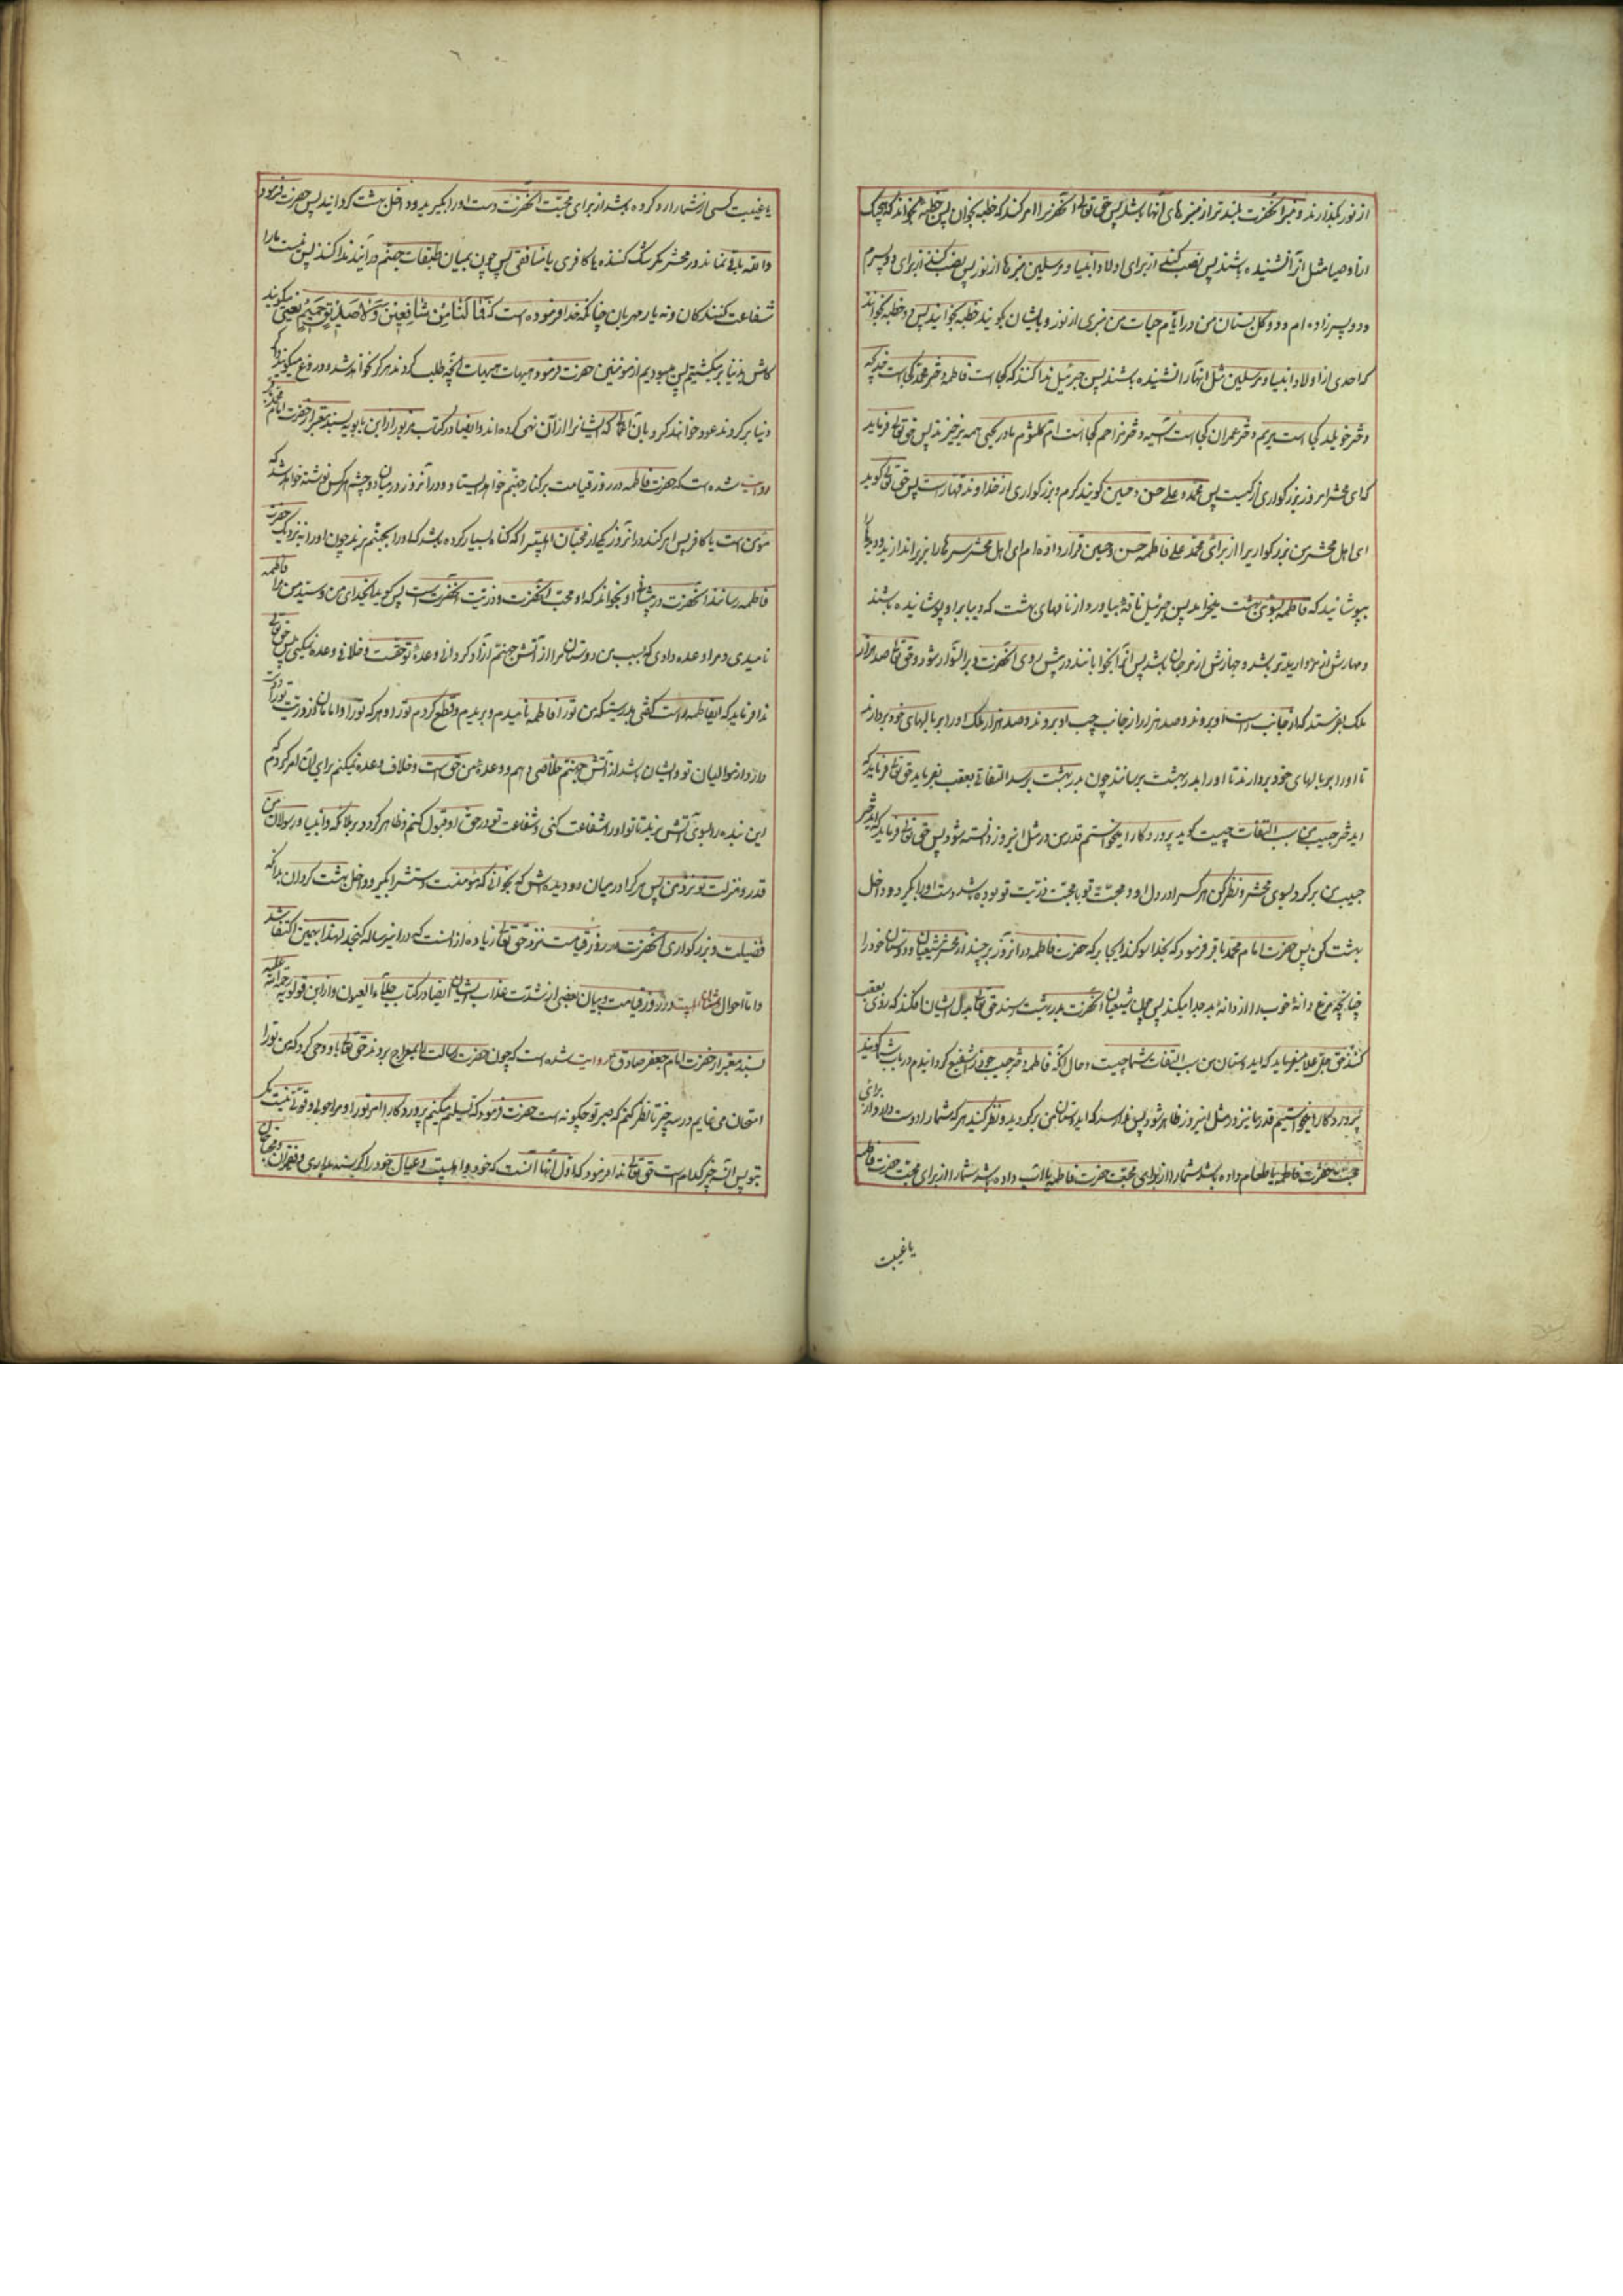 از نور بگذارند و منبر آنحضرت بلندتر از منبرهای آنها باشد پس حق تعالی آنحضرترا امر کند که خطبه بخوان پس خطبه بخواند که هیچیک
از اوصیا مثل آنرا نشنیده باشند پس نصب کنند از برای اولاد انبیا و مرسلین منبرها از نور پس نصب کنند از برای دو پسرم
و دو پسرزاده ام و دو گل بستان من در ایام حیات من منبری از نور و بایشان گویند خطبه بخوانید پس دو خطبه بخوانند
که احدی از اولاد انبیا و مرسلین مثل آنها را نشنیده باشند پس جبرئیل ندا کند که کجا است فاطمه دختر محمد کجا است خدیجه
دختر خویلد کجا است مریم دختر عمران کجا است آسیه دختر مزاحم کجا است ام کلثوم مادر یحیی همه برخیزند پس حق تعالی فرماید
که ای محشر امروز بزرگواری از کیست پس محمد و علی و حسن و حسین گویند کرم و بزرگواری از خداوند قهار است پس حق تعالی گوید
ای اهل محشر من بزرگواریرا از برای محمد علی فاطمه حسن و حسین قرار داده ام ای اهل محشر سرها را بزیر اندازید و دیدها
بپوشانید که فاطمه بسوی بهشت میخرامد پس جبرئیل ناقه بیاورد از ناقهای بهشت که دیبا بر او پوشانیده باشند
و مهارش از مروارید تر باشد و جهازش از مرجان باشد پس آنرا بخوابانند در پیش روی آنحضرت و بر آن سوار شود و حق تعالی صد هزار
ملک بفرستد که از جانب راست او بروند و صد هزار از جانب چپ او بروند و صد هزار ملک او را بر بالهای خود بردارند
تا او را بر بالهای خود بردارند تا او را بدر بهشت برسانند چون بدر بهشت برسد التفاتی بعقب بفرماید حق تعالی فرماید که
ایدختر حبیب من سبب التفات چیست گوید پروردگارا میخواستم قدر من در مثل این روز دانسته شود پس حق تعالی فرماید که ایدختر
حبیب من برگرد بسوی محشر و نظر کن هر کسرا در دل او محبت تو یا محبت ذریت تو بوده باشد دست او را بگیر و داخل
بهشت کن پس حضرت امام محمد باقر فرمود که بخدا سوگند ایجابر که حضرت فاطمه در آنروز برچیند از محشر شیعیان و دوستان خود را
چنانچه مرغ دانهٔ خوب را از دانهٔ بد جدا میکند پس چون شیعیان آنحضرت بدر بهشت رسند حق تعالی بدل ایشان افکند که روی بعقب
کنند حق جل و علا میفرماید که ایدوستان من سبب التفات شما چیست و حال آنکه فاطمه دختر حبیب خود را شفیع گردانیدم در باب شما گویند
پروردگارا میخواستیم قدر ما نیز در مثل این روز ظاهر شود پس ندا رسد که ایدوستان من برگردید و نظر کنید هر که شما را دوست دارد از برای
محبت حضرت فاطمه یا طعام داده باشد شما را از برای محبت حضرت فاطمه یا آب داده باشد شما را از برای محبت حضرت فاطمه
یا غیبت
یا غیبت کسی از شما را رد کرده باشد از برای محبت آنحضرت دست او را بگیرید و داخل بهشت گردانید پس حضرت فرمود
والله باقی نماند در محشر مگر شک کننده یا کافری یا منافقی پس چون بمیان طبقات جهنم درآیند ندا کنند پس نیست ما را
شفاعت کنندگان و نه یار مهربان چنانکه خدا فرموده است که فَمَا لَنَا مِنْ شَافِعِینَ وَلَا صَدِیقٍ حَمِیمٍ یعنی میگویند
کاش بدنیا برمیگشتیم پس میبودیم از مؤمنین حضرت فرمود هیهات هیهات آنچه طلب کردند هرگز نخواهد شد و دروغ میگویند و اگر
دنیا برگردند عود خواهند کرد بآن اعمالی که ایشانرا از آن نهی کرده اند و ایضا در کتاب مزبور از ابن بابویه بسند معتبر از حضرت امام محمد باقر
روایت شده است که حضرت فاطمه در روز قیامت بر کنار جهنم خواهد ایستاد و در آنروز در میان دو چشم هر کس نوشته خواهد شد که
مؤمن است یا کافر پس امر کنند در آنروز یکی از محبان اهلبیترا که گناه بسیار کرده باشد که او را بجهنم برند چون او را بنزدیک حضرت
فاطمه رسانند آنحضرت در میان او بخواند که او محب آنحضرت و ذریت آنحضرت است پس گوید ایخدای من و سید من مرا فاطمه
نامیدی و مرا وعده دادی که بسبب من دوستان مرا از آتش جهنم آزاد گردانی و وعدهٔ تو حقست و خلاف وعده نمیکنی پس حق تعالی
ندا فرماید که ایفاطمه راست گفتی بدرستیکه من تو را فاطمه نامیدم و بریدم و قطع کردم تو را و هر که تو را و امامان از ذریت تو را دوست
دارد از موالیان تو و ایشان باشد از آتش جهنم خلاصی دهم و وعدهٔ من حق است و خلاف وعده نمیکنم برای آن امر کردم که
این بنده را بسوی آتش برند تا تو او را شفاعت کنی و شفاعت تو در حق او قبول کنم و ظاهر گردد بر ملائکه و انبیا و رسولان من
قدر و منزلت تو نزد من پس هر که را در میان دو دیده‌اش بخوانی که مؤمنست دستش را بگیر و داخل بهشت گردان بدانکه
فضیلت و بزرگواری آنحضرت در روز قیامت نزد حق تعالی زیاده از آنست که در اینرساله گنجد لهذا بهمین اکتفا شد
و اما احوال در روز قیامت و بیان بعضی از شدت عذاب ایشان ایضا در کتاب جلاء العیون و از ابن قولویه رحمة الله علیه
بسند معتبر از حضرت امام جعفر صادق روایت شده است که چون حضرت رسالت را بمعراج بردند حق تعالی باو وحی کرد که من تو را
امتحان می نمایم در سه چیز تا نظر کنم که صبر تو چگونه است حضرت فرمود که تسلیم میکنم پروردگارا امر تو را و مرا حول و قوتی نیست مگر
بتو پس آن سه چیز کدام است حق تعالی ندا فرمود که اول آنها آنست که خود و اهلبیت و عیال خود را گرسنه بداری و فقیران و محتاجان